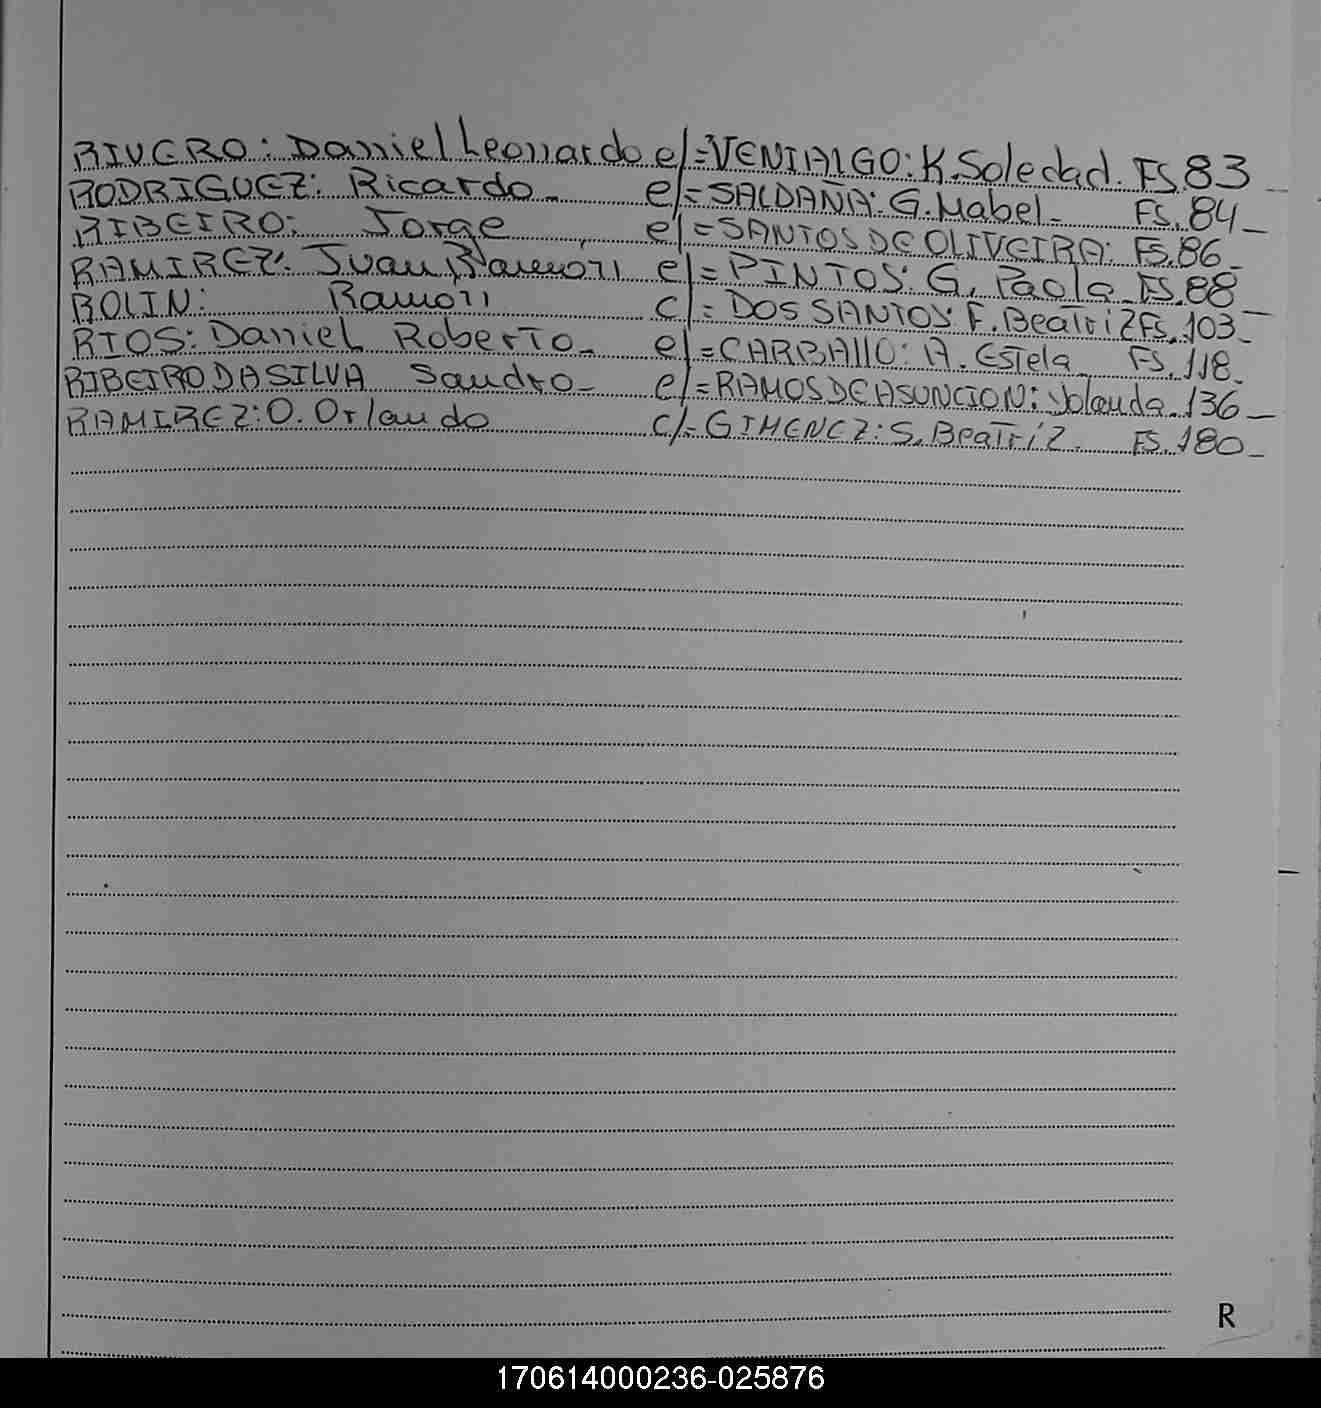 RIVERO: Daniel Leonardo c/= VENIALGO: K. Soledad. FS. 83
RODRIGUEZ: Ricardo - c/= SALDAÑA: G. Mabel - FS. 84 -
RIBEIRO: Jorge c/= SANTOS DE OLIVEIRA: FS. 86 -
RAMIREZ: Juan Ramon c/= PINTOS: G. Paola FS. 88 -
ROLIN: Ramon c/= DOS SANTOS: F. Beatriz FS. 103 -
RIOS: Daniel Roberto - c/= CARBALLO: A. Estela FS. 118 -
RIBEIRO DA SILVA Sandro - c/= RAMOS DE ASUNCION: Yolanda 136 -
RAMIREZ: O. Orlando c/= GIMENEZ: S. Beatriz - FS. 180 -
R
170614000236-025876